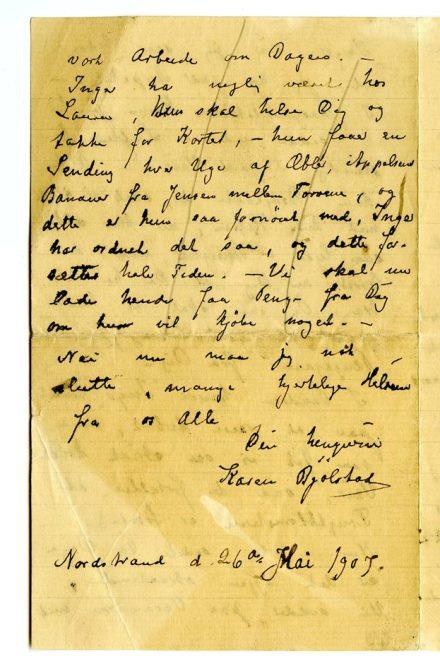 vort Arbeide om Dagen. –
Inger har nylig været hos
Laura, hun skal hilse Dig og
takke for Kortet, – hun faar en
Sending hver Uge af Æbler, Appelsiner
Bananer fra Jensen mellem Torvene, og
dette er hun saa fornøiet med, Inger
har ordnet det saa, og dette for-
sættes hele Tiden. – Vi skal nu
lade hende faa Penge fra Dig
om hun vil kjøbe noget. –
Nei nu maa jeg nok
slutte, mange hjertelige Hilsener
fra os Alle
Din hengivne
Karen Bjölstad
Nordstrand d. 26de Mai 1907.